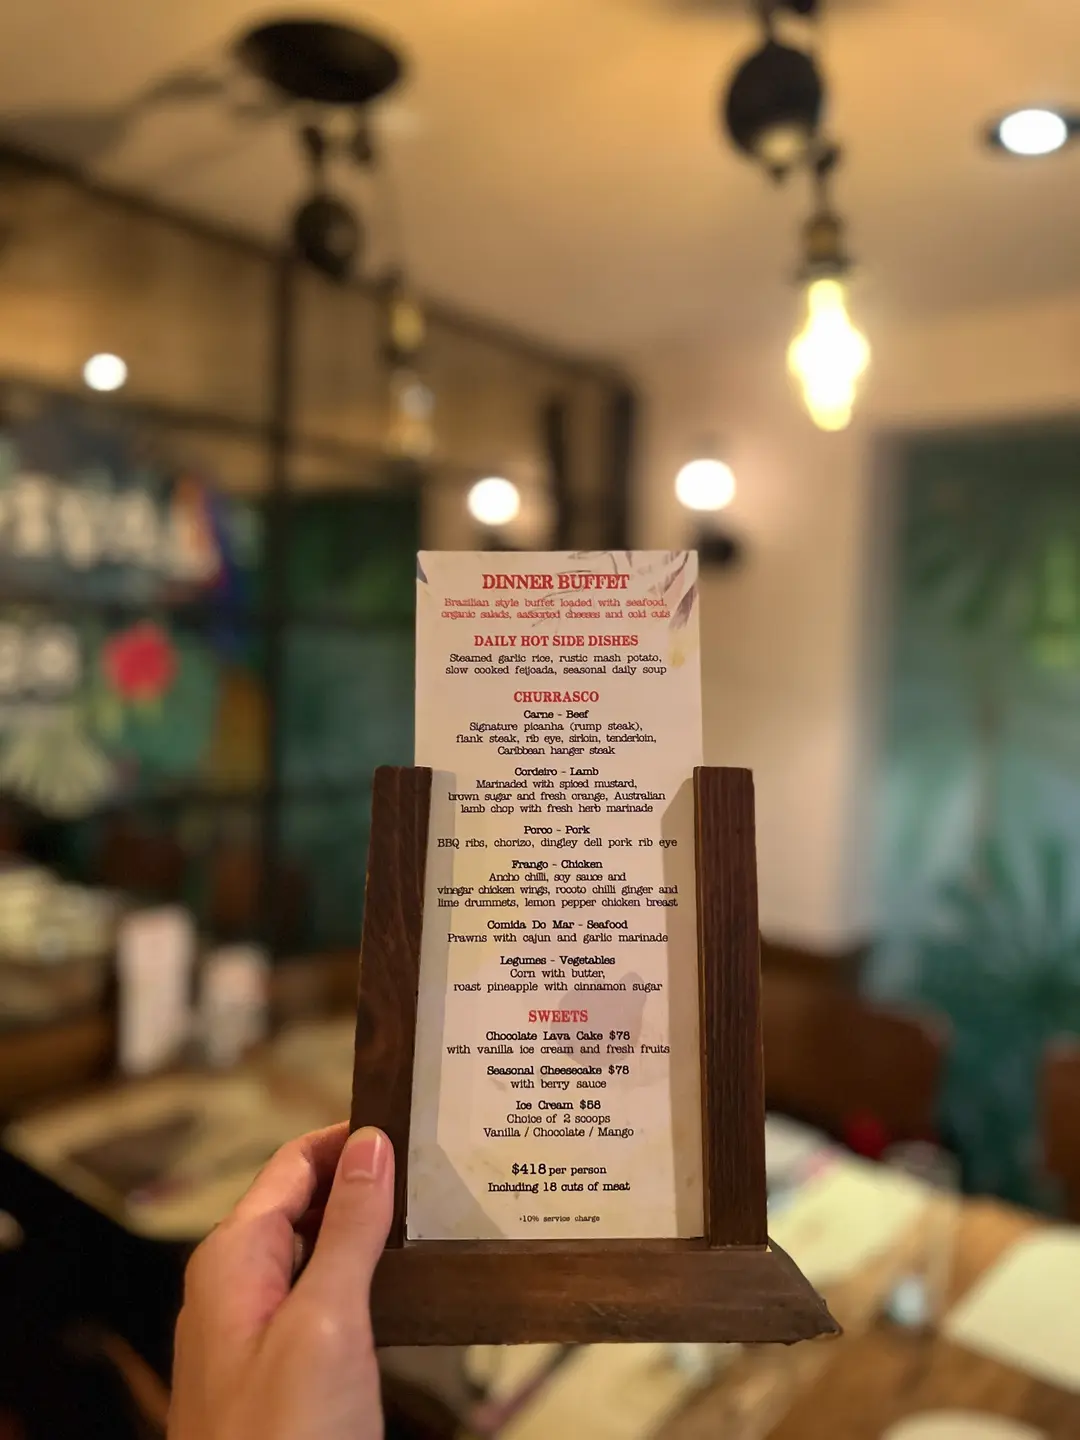 DINNER BUFFET
Brazilian style buffet loaded with seafood,
organic salads, aaSsorted cheeses and cold cuts
DAILY HOT SIDE DISHES
Steamed garlic rice, rustic mash potato,
slow cooked feijoada, seasonal daily soup
CHURRASCO
Carne - Beef
Signature picanha (rump steak),
flank steak, rib eye, sirloin, tenderloin,
Caribbean hanger steak
Cordeiro - Lamb
Marinaded with spiced mustard,
brown sugar and fresh orange, Australian
lamb chop with fresh herb marinade
Porco - Pork
BBQ ribs, chorizo, dingley dell pork rib eye
Frango - Chicken
Ancho chilli, soy sauce and
vinegar chicken wings, rocoto chilli ginger and
lime drummets, lemon pepper chicken breast
Comida Do Mar - Seafood
Prawns with cajun and garlic marinade
Legumes - Vegetables
Corn with butter,
roast pineapple with cinnamon sugar
SWEETS
Chocolate Lava Cake $78
with vanilla ice cream and fresh fruits
Seasonal Cheesecake $78
with berry sauce
Ice Cream $58
Choice of 2 scoops
Vanilla / Chocolate / Mango
$418 per person
Including 18 cuts of meat
+10% service charge